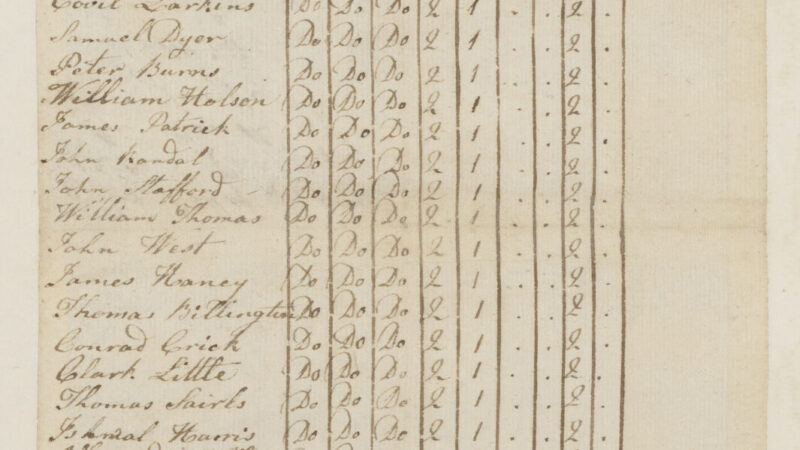 Covil Larkins Do Do Do 2 1 . . 2 .
Samuel Dyer Do Do Do 2 1 . . 2 .
Peter Burns Do Do Do 2 1 . . 2 .
William Holson Do Do Do 2 1 . . 2 .
James Patrick Do Do Do 2 1 . . 2 .
John Randal Do Do Do 2 1 . . 2 .
John Stafford Do Do Do 2 1 . . 2 .
William Thomas Do Do Do 2 1 . . 2 .
John West Do Do Do 2 1 . . 2 .
James Haney Do Do Do 2 1 . . 2 .
Thomas Billington Do Do Do 2 1 . . 2 .
Conrad Crick Do Do Do 2 1 . . 2 .
Clark Little Do Do Do 2 1 . . 2 .
Thomas Sairls Do Do Do 2 1 . . 2 .
Ishmal Harris Do Do Do 2 1 . . 2 .